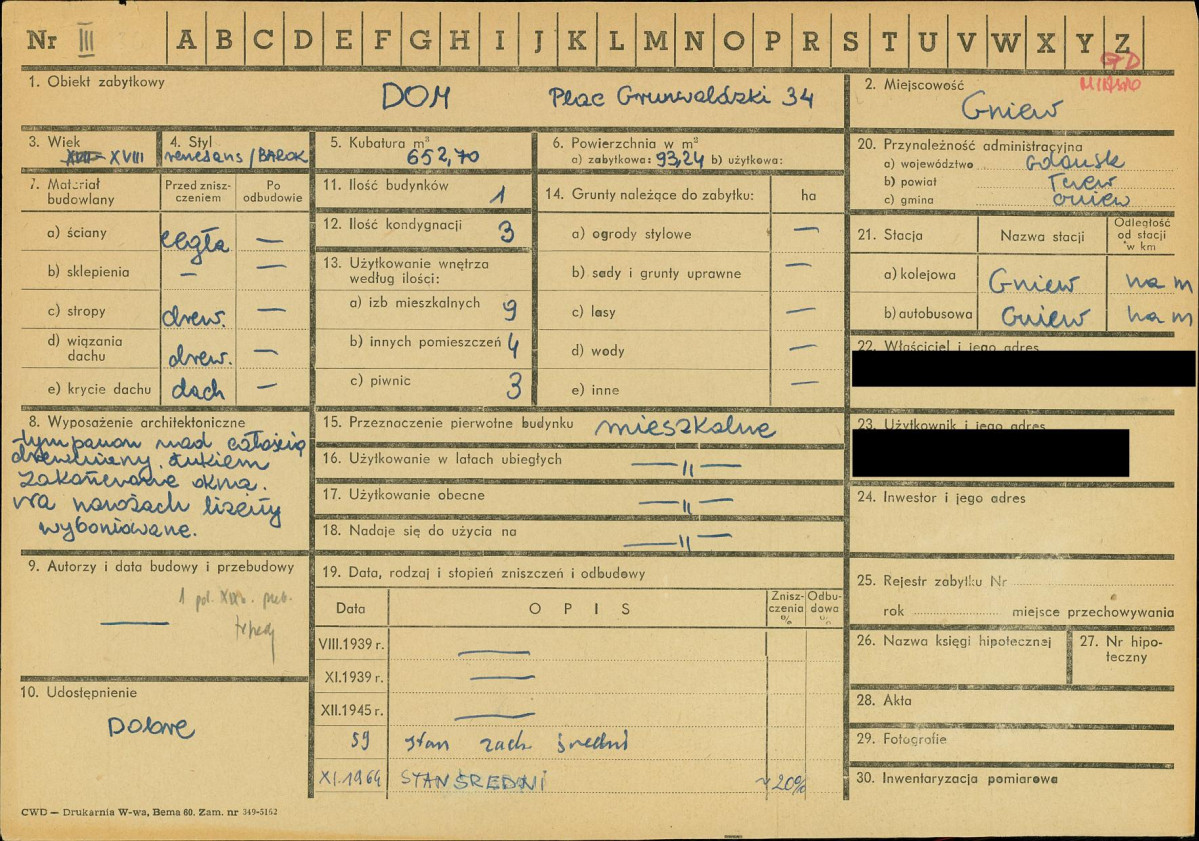 Nr III A B C D E F G H I J K L M N O P R S T U V W X Y Z
GD
MIASTO
1. Obiekt zabytkowy
DOM Plac Grunwaldzki 34
2. Miejscowość
Gniew
3. Wiek
XVIII
4. Styl
renesans/BAROK
5. Kubatura m³
652,70
6. Powierzchnia w m²
a) zabytkowa: 93,24 b) użytkowa:
20. Przynależność administracyjna
a) województwo Gdańsk
b) powiat Tczew
c) gmina Gniew
7. Materiał budowlany
Przed zniszczeniem
Po odbudowie
a) ściany cegła —
b) sklepienia — —
c) stropy drew. —
d) wiązania dachu drew. —
e) krycie dachu dach —
11. Ilość budynków 1
12. Ilość kondygnacji 3
13. Użytkowanie wnętrza
według ilości:
a) izb mieszkalnych 9
b) innych pomieszczeń 4
c) piwnic 3
14. Grunty należące do zabytku: ha
a) ogrody stylowe —
b) sady i grunty uprawne —
c) lasy —
d) wody —
e) inne —
21. Stacja
Nazwa stacji
Odległość
od stacji
w km
a) kolejowa Gniew na m
b) autobusowa Gniew na m
22. Właściciel i jego adres
23. Użytkownik i jego adres
24. Inwestor i jego adres
8. Wyposażenie architektoniczne
tympanon nad całością
drewniany. Łukiem
zakończone okna.
Na narożach lizeny
wyboniowane.
15. Przeznaczenie pierwotne budynku mieszkalne
16. Użytkowanie w latach ubiegłych —"—
17. Użytkowanie obecne —"—
18. Nadaje się do użycia na —"—
9. Autorzy i data budowy i przebudowy
1 poł. XIX w. przeb.
—
10. Udostępnienie
Dobre
19. Data, rodzaj i stopień zniszczeń i odbudowy
Data
OPIS
Zniszczenia %
Odbudowa %
VIII.1939 r. —
XI.1939 r. —
XII.1945 r. —
59 stan zach średni
XI.1964 STAN ŚREDNI ~20%
25. Rejestr zabytku Nr
rok miejsce przechowywania
26. Nazwa księgi hipotecznej
27. Nr hipoteczny
28. Akta
29. Fotografie
30. Inwentaryzacja pomiarowa
CWD — Drukarnia W-wa, Bema 60. Zam. nr 349-5162